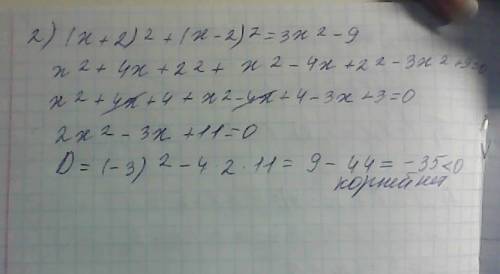 2) (x+2)² + (x-2)² = 3x² - 9
x² + 4x + 2² + x² - 4x + 2² - 3x² + 9 = 0
x² + 4x + 4 + x² - 4x + 4 - 3x + 3 = 0
2x² - 3x + 11 = 0
D = (-3)² - 4 · 2 · 11 = 9 - 44 = -35 < 0
корней нет